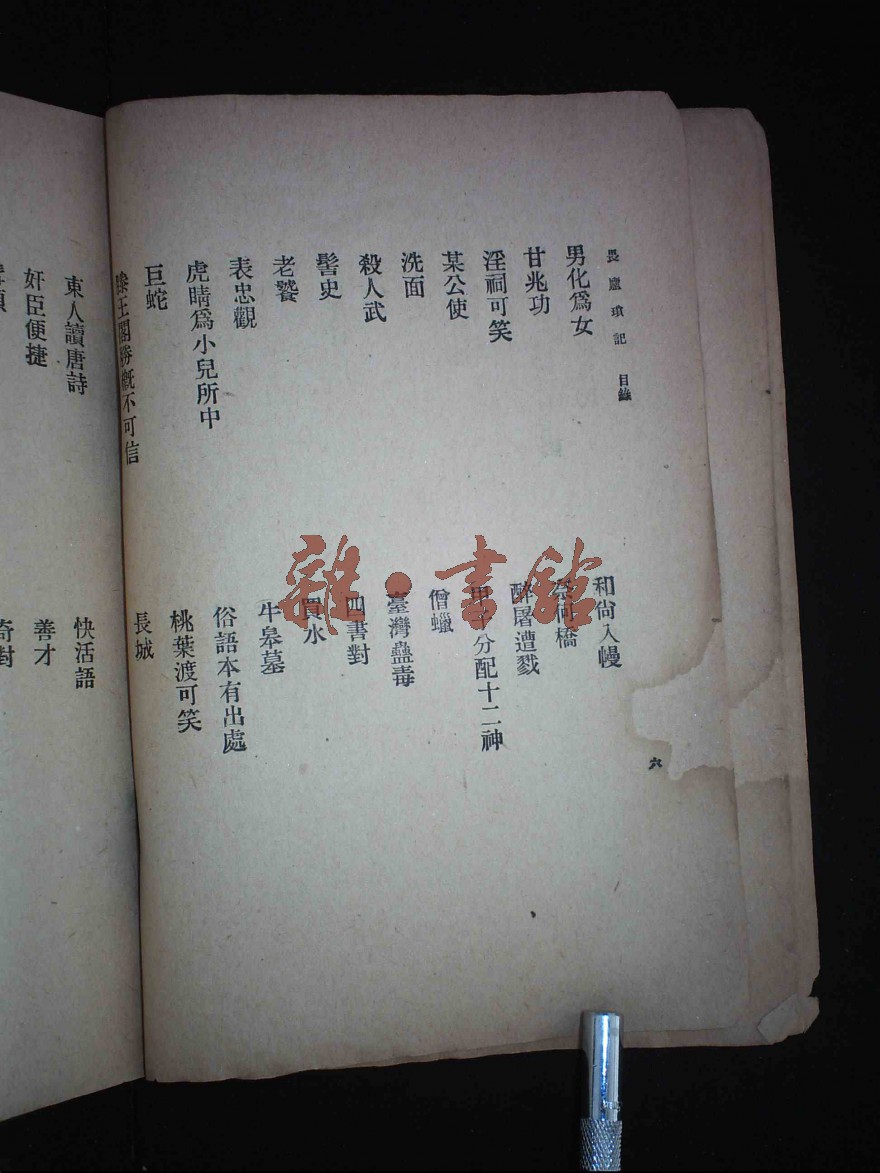 畏廬瑣記 目錄
六
男化爲女
和尙入幔
甘兆功
奈何橋
淫祠可笑
醉屠遭戮
某公使
甲子分配十二神
洗面
僧蠟
殺人武
臺灣蠱毒
髻史
四書對
老饕
買水
表忠觀
牛皋墓
虎睛爲小兒所中
俗語本有出處
巨蛇
桃葉渡可笑
滕王閣勝槪不可信
長城
東人讀唐詩
快活語
奸臣便捷
善才
奇對
雜·書館